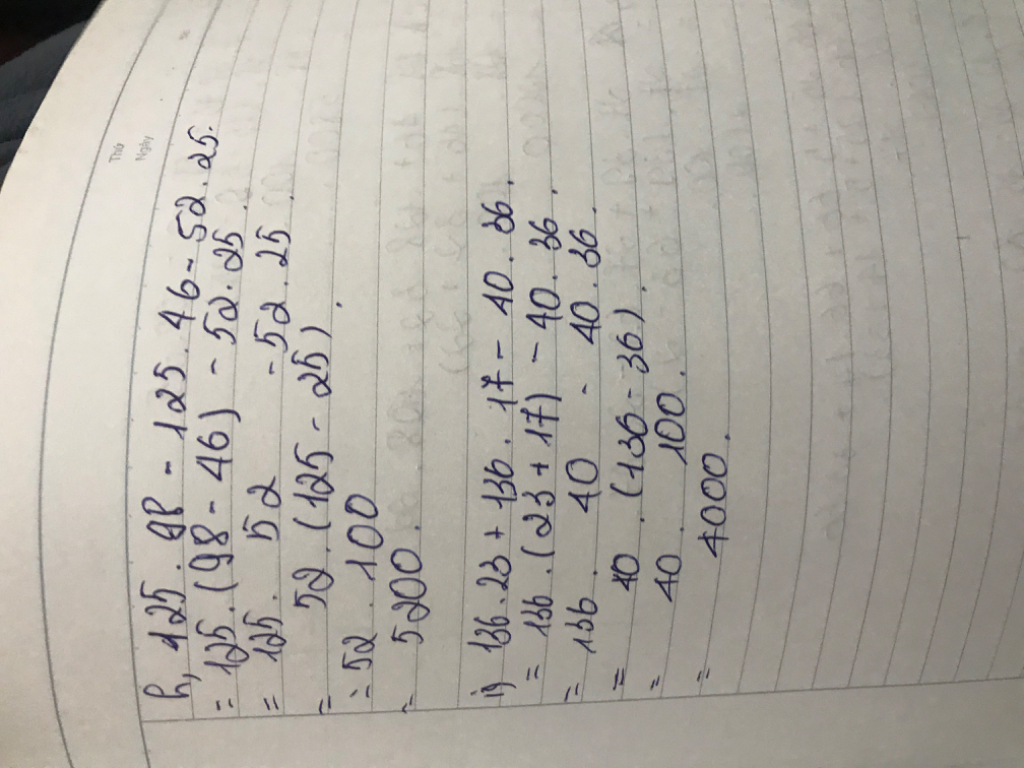 Thứ
Ngày
h, 125.98 - 125.46 - 52.25.
= 125.(98 - 46) - 52.25.
= 125.52 - 52.25.
= 52.(125 - 25).
= 52.100
= 5200.
i) 136.23 + 136.17 - 40.36.
= 136.(23 + 17) - 40.36.
= 136.40 - 40.36.
= 40.(136 - 36).
= 40.100.
= 4000.